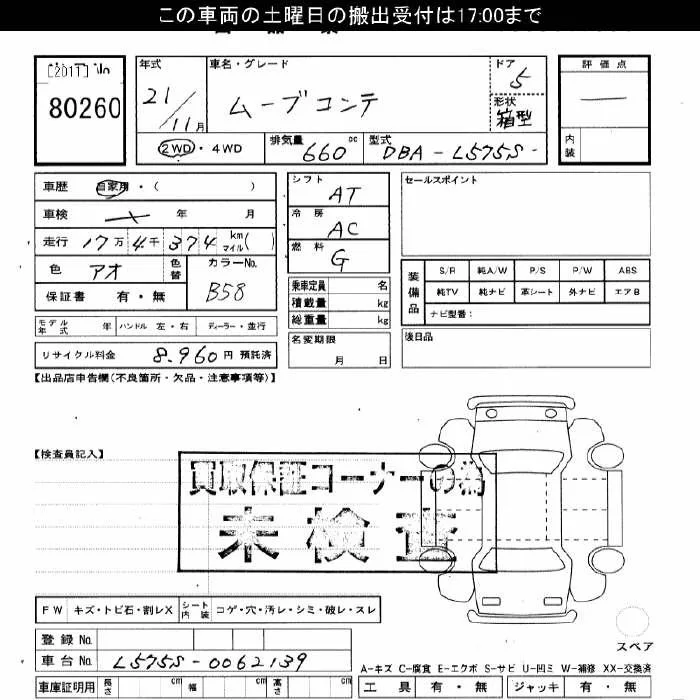 この車両の土曜日の搬出受付は17:00まで
[2017] No
80260
年式
21/11月
車名・グレード
ムーブコンテ
ドア
5
形状
箱型
評価点
—
内装
2WD・4WD
排気量
660 cc
型式
DBA-L575S-
車歴 自家用・( )
車検 年 月
走行 17万 4千 374 km マイル( )
色 アオ 色替
カラーNo.
B58
保証書 有・無
シフト
AT
冷房
AC
燃料
G
セールスポイント
乗車定員 名
積載量 kg
総重量 kg
名変期限
月 日
装備品
S/R 純A/W P/S P/W ABS
純TV 純ナビ 革シート 外ナビ エアB
ナビ型番:
モデル年式 年 ハンドル 左・右 ディーラー・並行
リサイクル料金 8,960円 預託済
後日品
【出品店申告欄(不良箇所・欠品・注意事項等)】
【検査員記入】
買取保証コーナーの為
未検査
FW キズ・トビ石・割レX シート内装 コゲ・穴・汚レ・シミ・破レ・スレ
スペア
登録No.
車台No. L575S-0062139
A-キズ C-腐食 E-エクボ S-サビ U-凹ミ W-補修 XX-交換済
車庫証明用 長さ cm 幅 cm 高さ cm
工具 有・無 ジャッキ 有・無